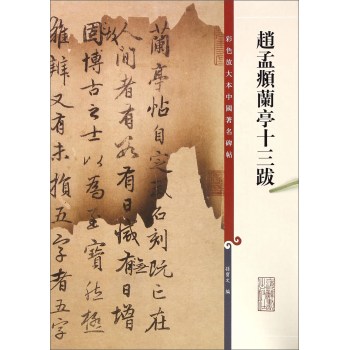 趙孟頫蘭亭十三跋
彩色放大本中國著名碑帖
孫寶文 編
蘭亭帖自定武石刻既亡在
人間者有數有日減無日增
故博古之士以為至寶然極
難辨又有未損五字者五字